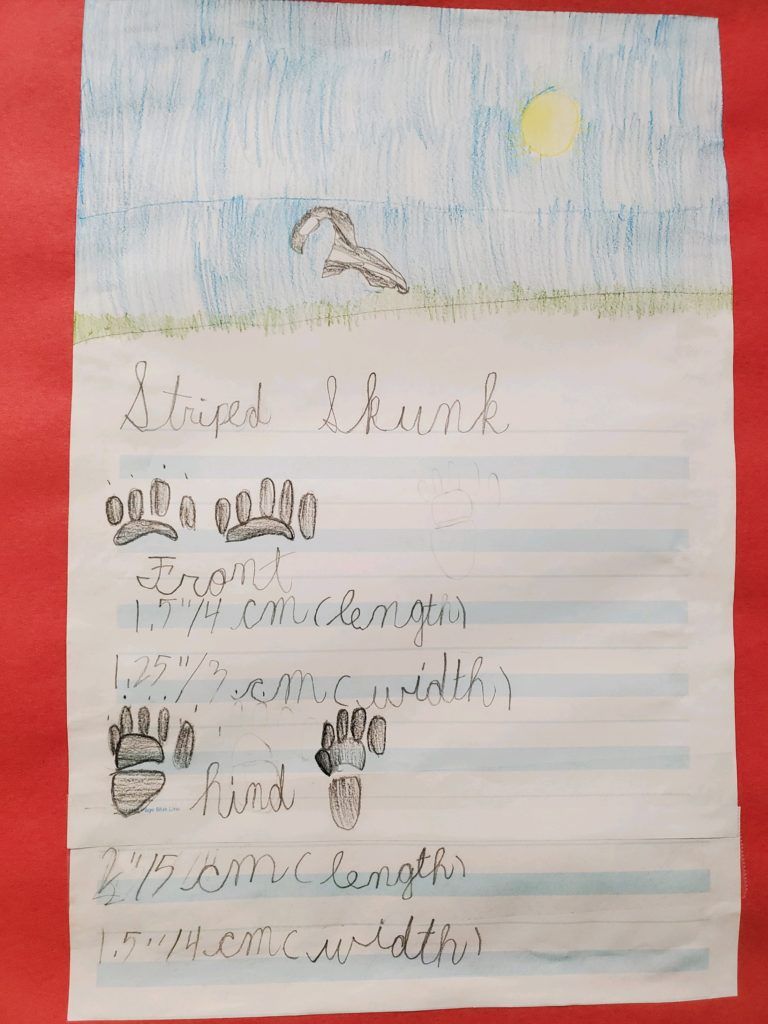 Striped Skunk
Front
1.5"/4 cm (length)
1.25"/3 cm (width)
hind
Page Blue Line
2"/5 cm (length)
1.5"/4 cm (width)